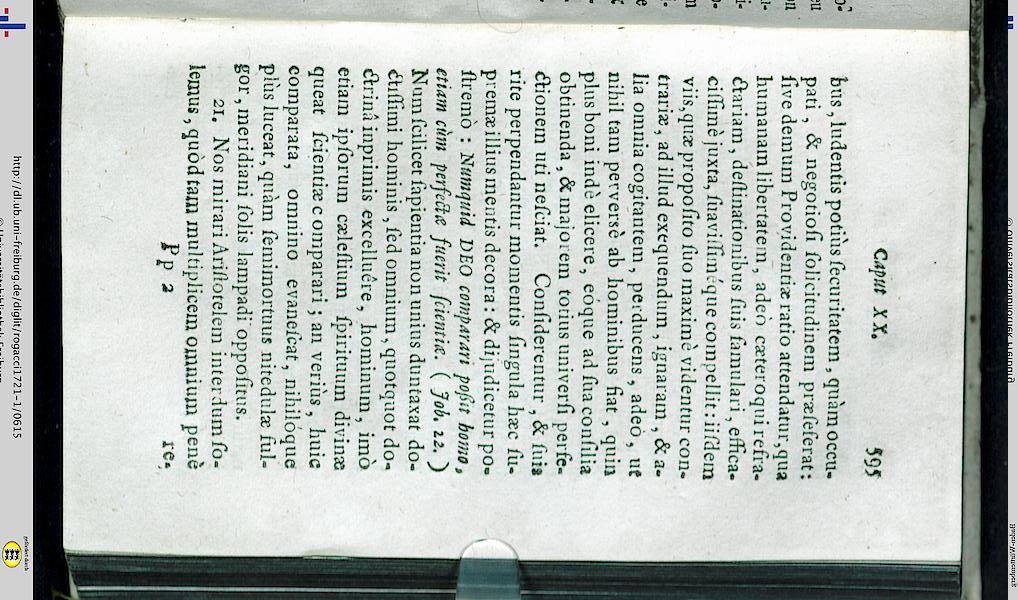 Caput XX. 595
bus, ludentis potiùs ſecuritatem, quàm occu-
pati, & negotioſi ſolicitudinem præſeferat:
ſive demum Providentiæ ratio attendatur, qua
humanam libertatem, adeò cæteroqui refra-
ctariam, deſtinationibus ſuis famulari, effica-
ciſſimè juxta, ſuaviſſiméque compellit: iiſdem
viis, quæ propoſito ſuo maximè videntur con-
trariæ, ad illud exequendum, ignaram, & a-
lia omnia cogitantem, perducens, adeò, ut
nihil tam perversè ab hominibus fiat, quin
plus boni indè elicere, eóque ad ſua conſilia
obtinenda, & majorem totius univerſi perfe-
ctionem uti neſciat. Conſiderentur, & ſuis
rite perpendantur momentis ſingula hæc ſu-
premæ illius mentis decora: & dijudicetur po-
ſtremò: Numquid DEO comparari poßit homo,
etiam cùm perfectæ fuerit ſcientiæ. (Job. 22.)
Num ſcilicet ſapientia non unius duntaxat do-
ctiſſimi hominis, ſed omnium, quotquot do-
ctrinâ inprimis excelluêre, hominum, imò
etiam ipſorum cæleſtium ſpirituum divinæ
queat ſcientiæ comparari; an veriùs, huic
comparata, omnino evaneſcat, nihilóque
plùs luceat, quàm ſemimortuus nitedulæ ful-
gor, meridiani ſolis lampadi oppoſitus.
21. Nos mirari Ariſtotelem interdum ſo-
lemus, quòd tam multiplicem omnium penè
Pp 2 re-
http://dl.ub.uni-freiburg.de/diglit/rogacci1721-1/0615